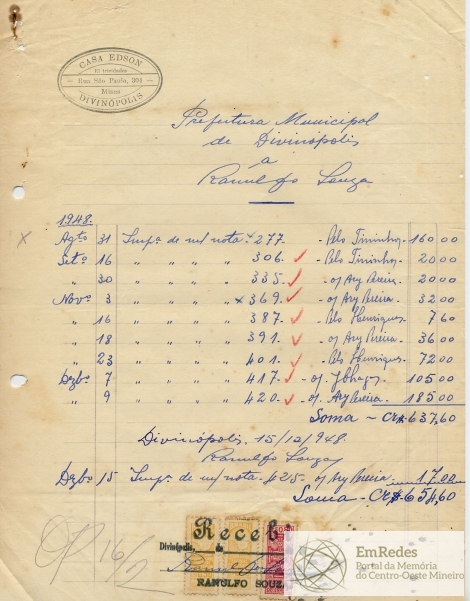 CASA EDSON
Rua São Paulo, 304
Minas
DIVINÓPOLIS
Prefeitura Municipal
de Divinópolis
a
Ranulfo Souza
1948.
Agto 31 Impª de m/ nota 277. - Pelo Tininho - 160 00
Setº 16 " " " " 306. ✓ - Pelo Tininho - 20 00
" 30 " " " " 335. ✓ - of Ary Pereira. 20 00
Novº 3 " " " " x 369. ✓ - of Ary Pereira. 32 00
" 16 " " " " 387 ✓ - Pelo Henrique - 7 60
" 18 " " " " 391. ✓ - of Ary Pereira. 36 00
" 23 " " " " 401. ✓ - Pelo Henrique - 72 00
Dezbº 7 " " " " 417. ✓ - of. 105 00
" 9 " " " " 420. ✓ - of Ary Pereira. 185 00
Soma - CR$ 637,60
Divinópolis, 15/12/948.
Ranulfo Souza
Dezbº 15 Impª de m/ nota - 425 - of Ary Pereira 17 00
Soma - CR$ 654,60
Receb
Divinópolis, de
RANULFO SOUZ
16/
EmRedes
Portal da Memória
do Centro-Oeste Mineiro